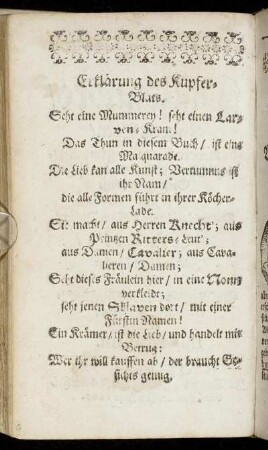 Erklärung des Kupfer-
Blats.
Seht eine Mummerey! seht einen Lar-
ven-Kram!
Das Thun in diesem Buch / ist eine
Masquarade.
Die Lieb kan alle Kunst; Vertumnus ist
ihr Nam /
die alle Formen führt in ihrer Köcher-
Lade.
Sie macht / aus Herren Knecht'; aus
Printzen Ritters-Leut';
aus Damen / Cavalier; aus Cava-
lieren / Damen;
Seht dieses Fräulein hier / in eine Nonn
verkleidt;
seht jenen Sklaven dort / mit einer
Fürstin Namen!
Ein Krämer / ist die Lieb / und handelt mit
Betrug:
Wer ihr will kauffen ab / der braucht Ge-
sichts genug.